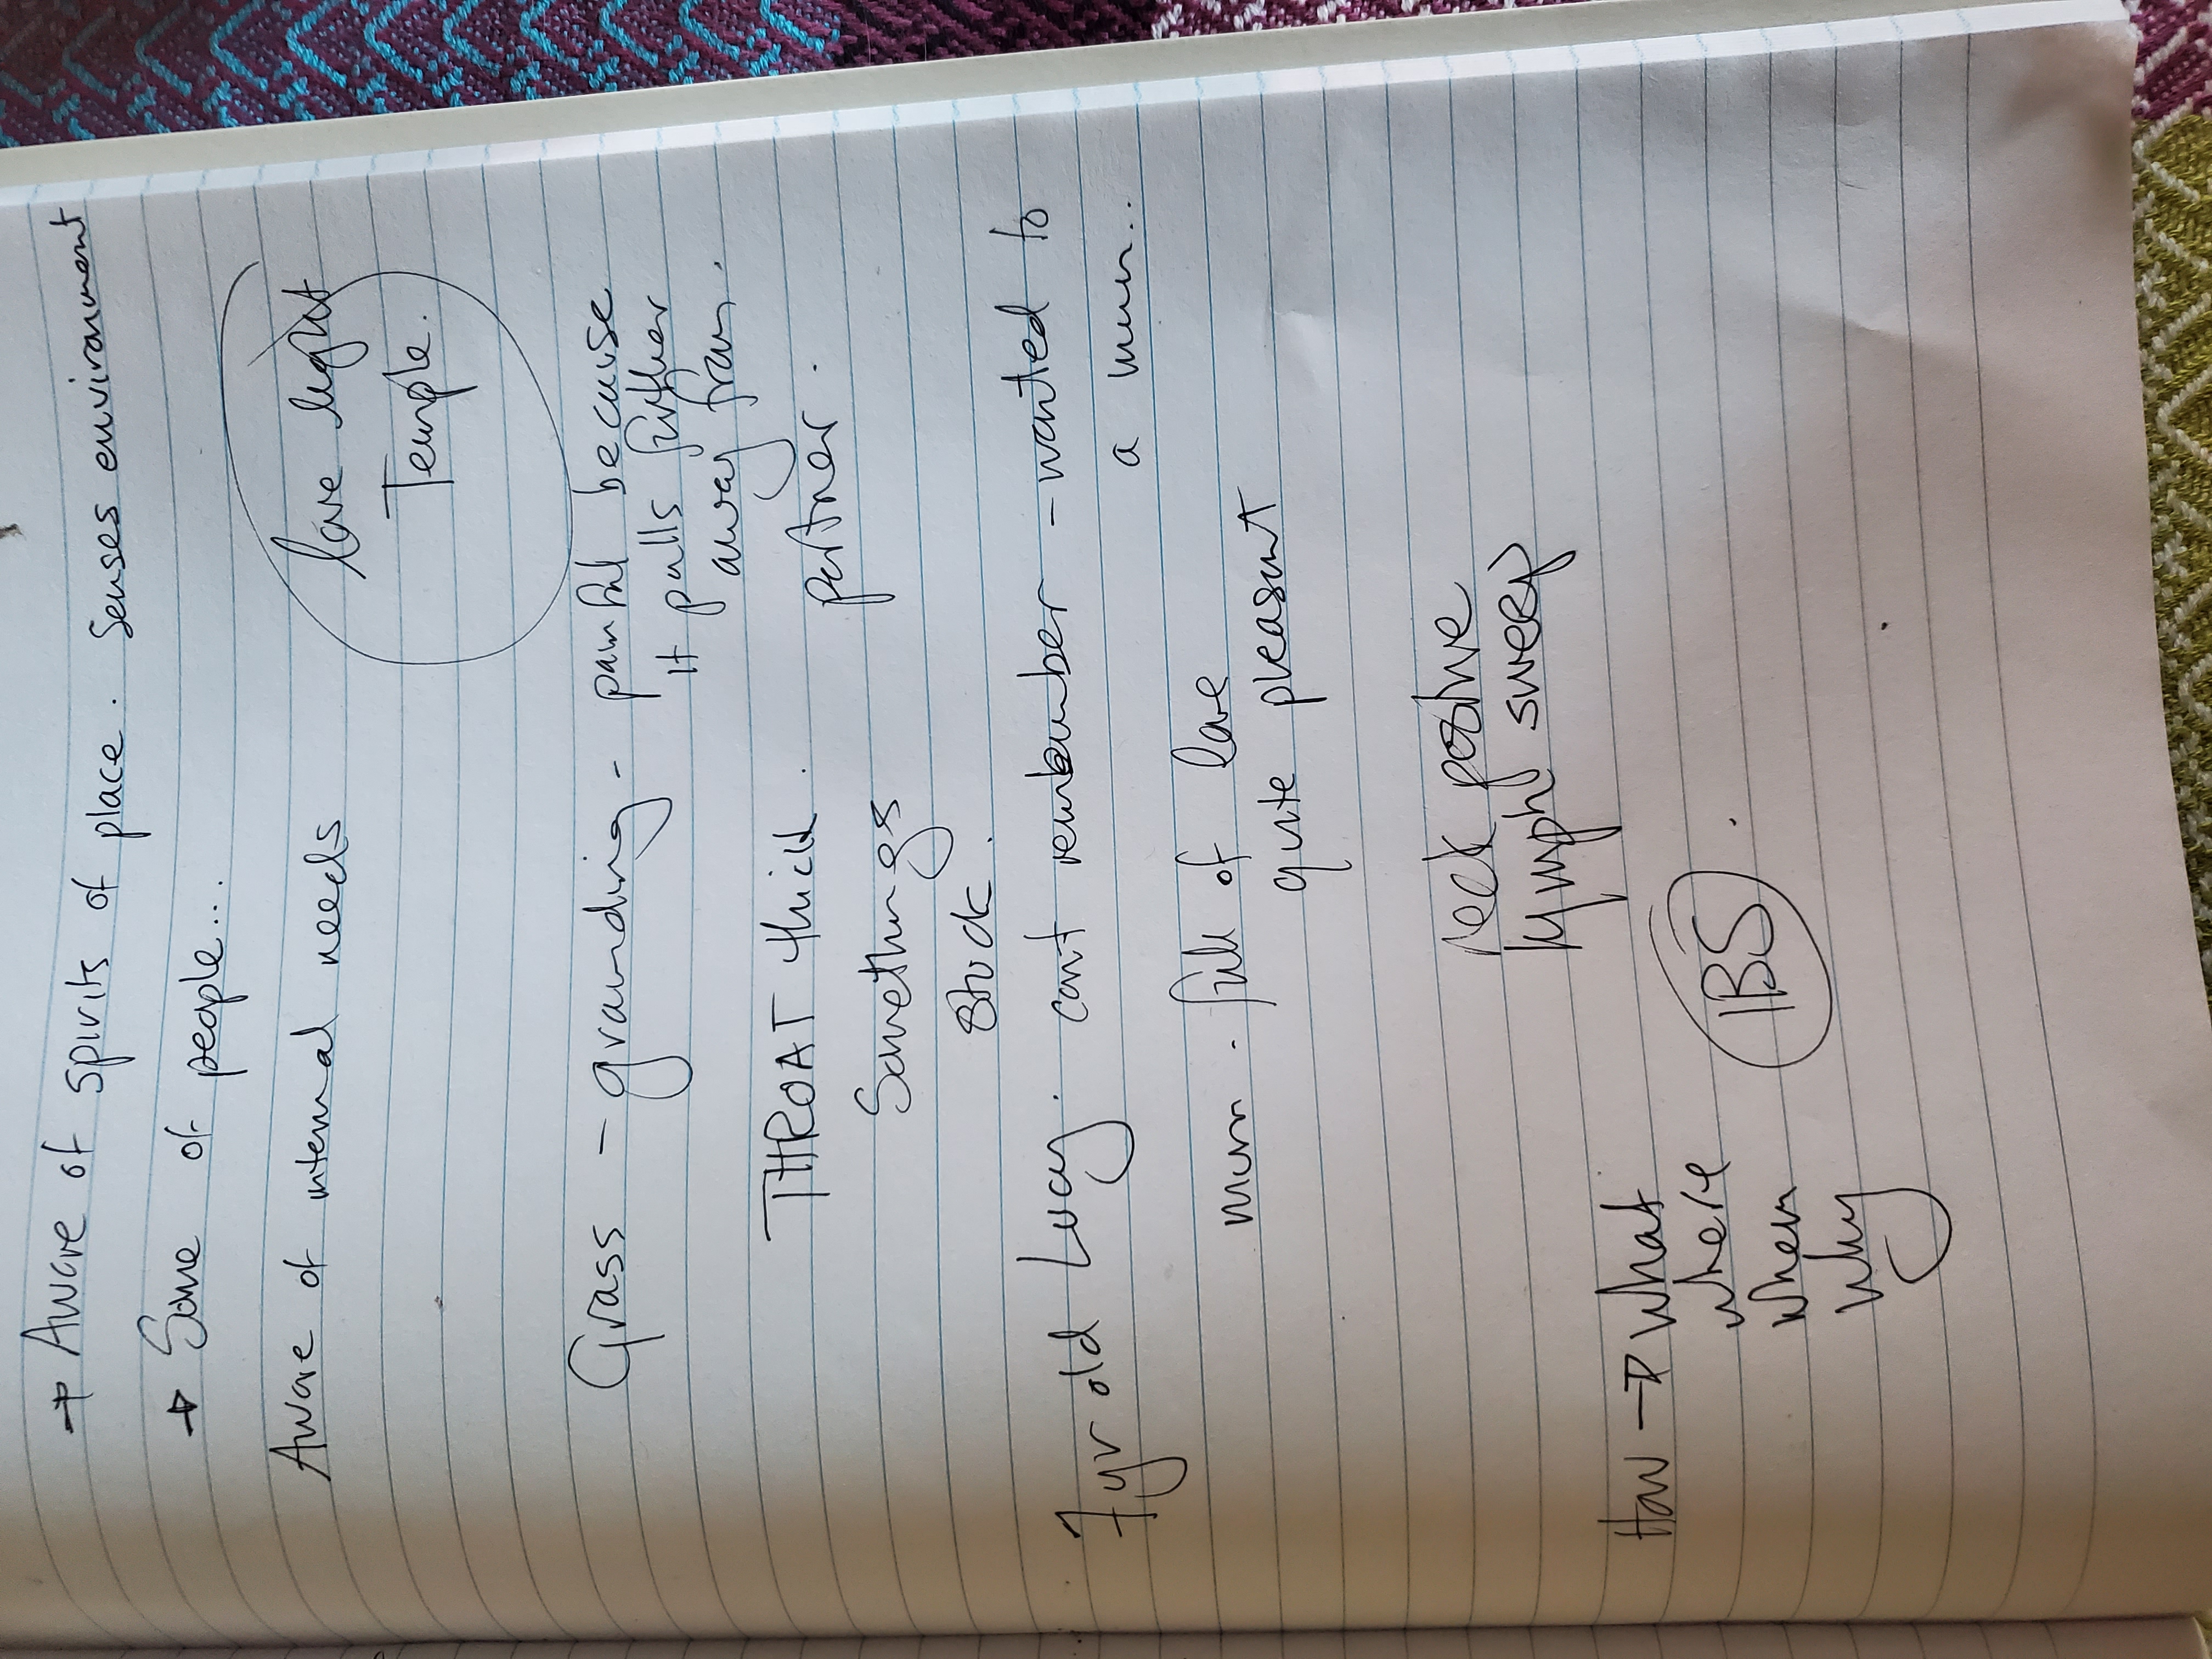 → Aware of spirits of place. Senses environment
→ Some of people...
Aware of internal needs
love light
Temple.
Grass - grounding - painful because
it pulls further
away from.
partner.
THROAT thick.
Somethings
Stuck.
7yr old Lucy. cant remember - wanted to
a mum..
mum. full of love
quite pleasant
neck postive
lymph sweep
How → what
where
when
why
IBS.